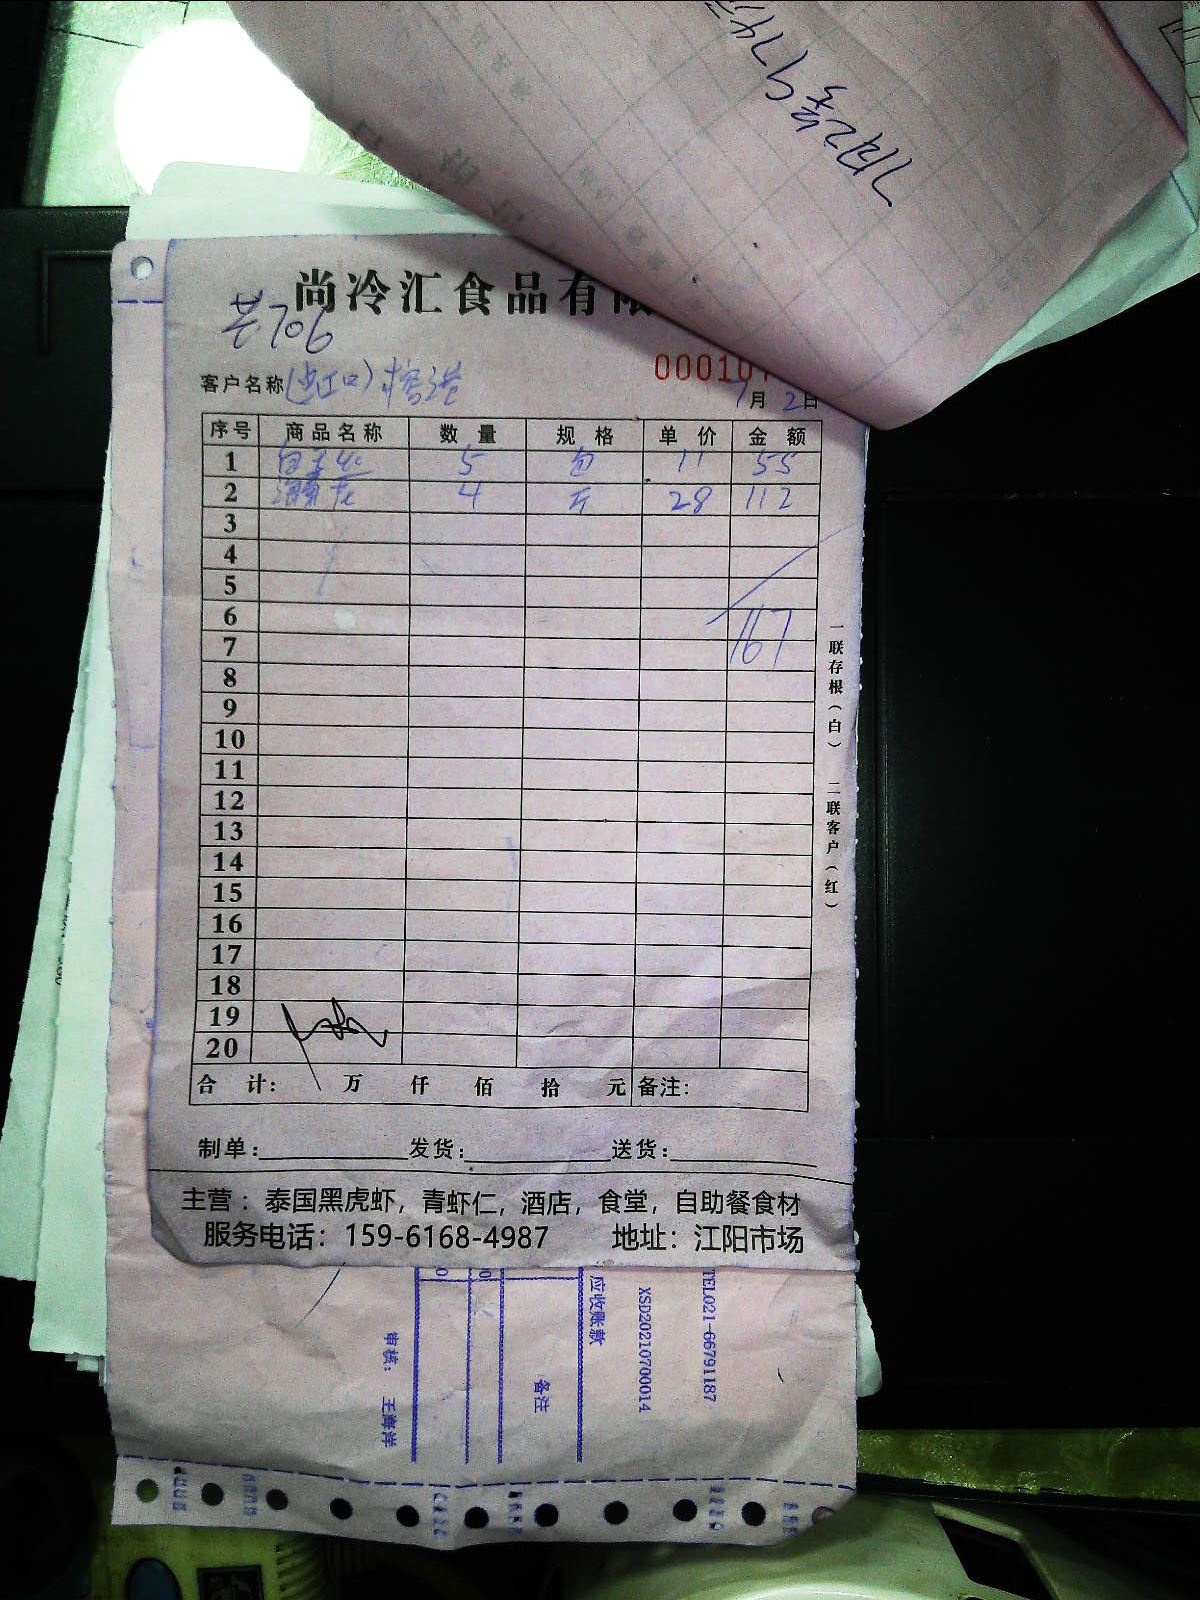 7月2号974元
尚冷汇食品有限
共706
00010
客户名称(进口)
7月2日
序号 商品名称 数量 规格 单价 金额
1 5 包 11 55
2 4 斤 28 112
3
4
5
6
167
7
8
9
10
11
12
13
14
15
16
17
18
19
20
合计: 万 仟 佰 拾 元 备注:
制单: 发货: 送货:
主营：泰国黑虎虾，青虾仁，酒店，食堂，自助餐食材
服务电话：159-6168-4987 地址：江阳市场
一联存根（白） 二联客户（红）
TEL021-66791187
XSD20210700014
应收账款
备注
审核： 王海洋